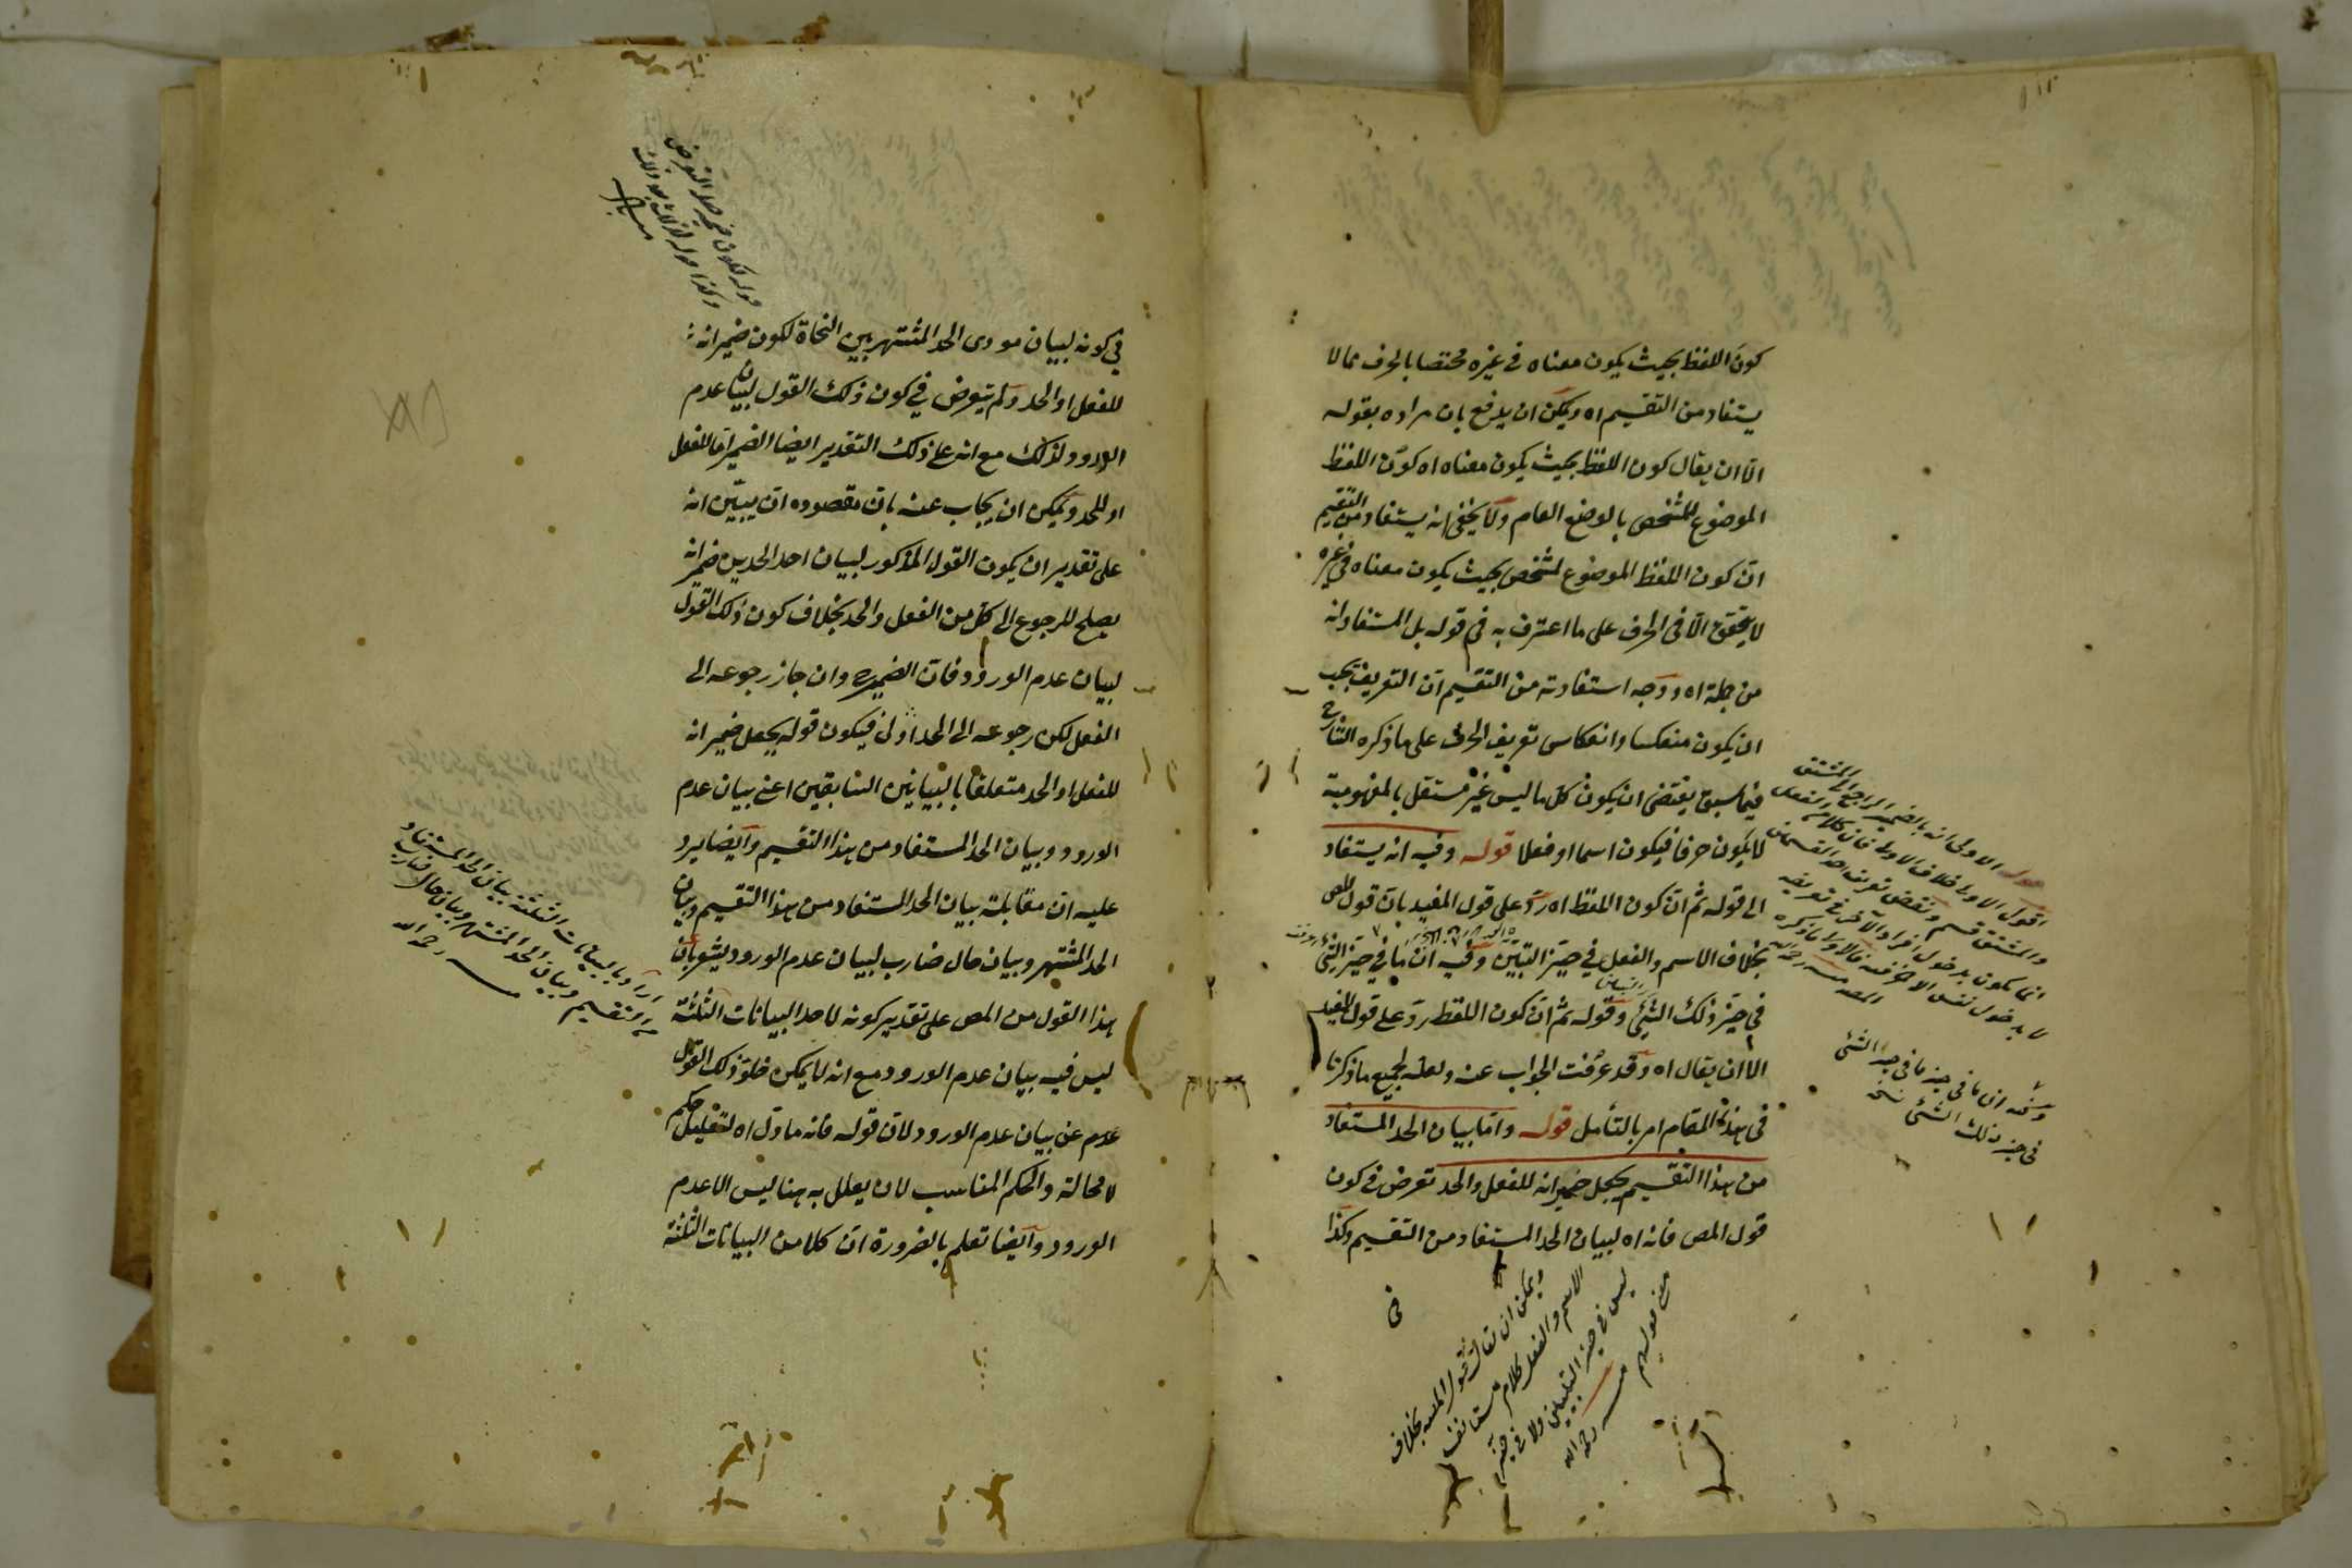 كون اللفظ بحيث يكون معناه في غيره مختصا بالحرف مما لا
يستفاد من التقسيم اه ويمكن ان يدفع بان مراده بقوله
الا ان يقال كون اللفظ بحيث يكون معناه اه كون اللفظ
الموضوع للشخص بالوضع العام ولا يخفى انه يستفاد من التقسيم
ان كون اللفظ الموضوع لشخص بحيث يكون معناه في غيره
لا يتحقق الا في الحرف على ما اعترف به في قوله بل المستفاد انه
من جملة اه ووجه استفادته من التقسيم ان التعريف يجب
ان يكون منعكسا وانعكاس تعريف الحرف على ما ذكره الشارح
فيما سبق يقتضي ان يكون كل ما ليس غير مستقل بالمفهومية
لا يكون حرفا فيكون اسما او فعلا قوله وفيه انه يستفاد
الى قوله ثم ان كون اللفظ اه رد على قول المفيد بان قول المص
بخلاف الاسم والفعل في حيز التبين وفيه ان ما في حيز الشيء
في حيز ذلك الشيء وقوله ثم ان كون اللفظ رد على قول المفيد
الا ان يقال اه وقد عرفت الجواب عنه ولعله لجميع ما ذكرنا
في هذا المقام امر بالتأمل قوله واما بيان الحد المستفاد
من هذا التقسيم بجعل ضمير انه للفعل والحد تعرض في كون
قول المص فانه اه لبيان الحد المستفاد من التقسيم وكذا
في
اقول الاولى خلاف الاول فان كلام
والمشتق قسم ونقض تعريف احد القسمين
انما يكون بدخول افراد الآخر في تعريفه
لا بدخول نفس الآخر فيه فالاولى ما ذكره
وفيه ان ما في حيز ما في حيز الشئ
في حيز ذلك الشئ نسخه
ويمكن ان يقال قول المص بخلاف
الاسم والفعل كلام مستأنف
ليس في حيز التبيين ولا في حيز
رحمه الله
في كونه لبيان مودى الحد المشتهر بين النحاة لكون ضمير انه
للفعل او الحد ولم يتعرض في كون ذلك القول لبيان عدم
الورود لذلك مع انه على ذلك التقدير ايضا الضمير اما للفعل
او للحد ويمكن ان يجاب عنه بان مقصوده ان يبين انه
على تقدير ان يكون القول المذكور لبيان احد الحدين ضمير انه
يصلح للرجوع الى كل من الفعل والحد بخلاف كون ذلك القول
لبيان عدم الورود فان الضمير وان جاز رجوعه الى
الفعل لكن رجوعه الى الحد اولى فيكون قوله بجعل ضمير انه
للفعل او الحد متعلقا بالبيانين السابقين اعني بيان عدم
الورود وبيان الحد المستفاد من هذا التقسيم وايضا يرد
عليه ان مقابلة بيان الحد المستفاد من هذا التقسيم وبيان
الحد المشتهر وبيان حال ضارب لبيان عدم الورود يشعر بان
هذا القول من المص على تقدير كونه لاحد البيانات الثلثة
ليس فيه بيان عدم الورود مع انه لا يمكن خلو ذلك القول
عن بيان عدم الورود لان قوله فانه ما دل اه لتعليل حكم
لا محالة والحكم المناسب لان يعلل به هنا ليس الا عدم
الورود وايضا تعلم بالضرورة ان كلا من البيانات الثلثة
اراد بالبيانات الثلثة بيان الحد المستفاد
من التقسيم وبيان الحد المشتهر وبيان حال ضارب
رحمه الله